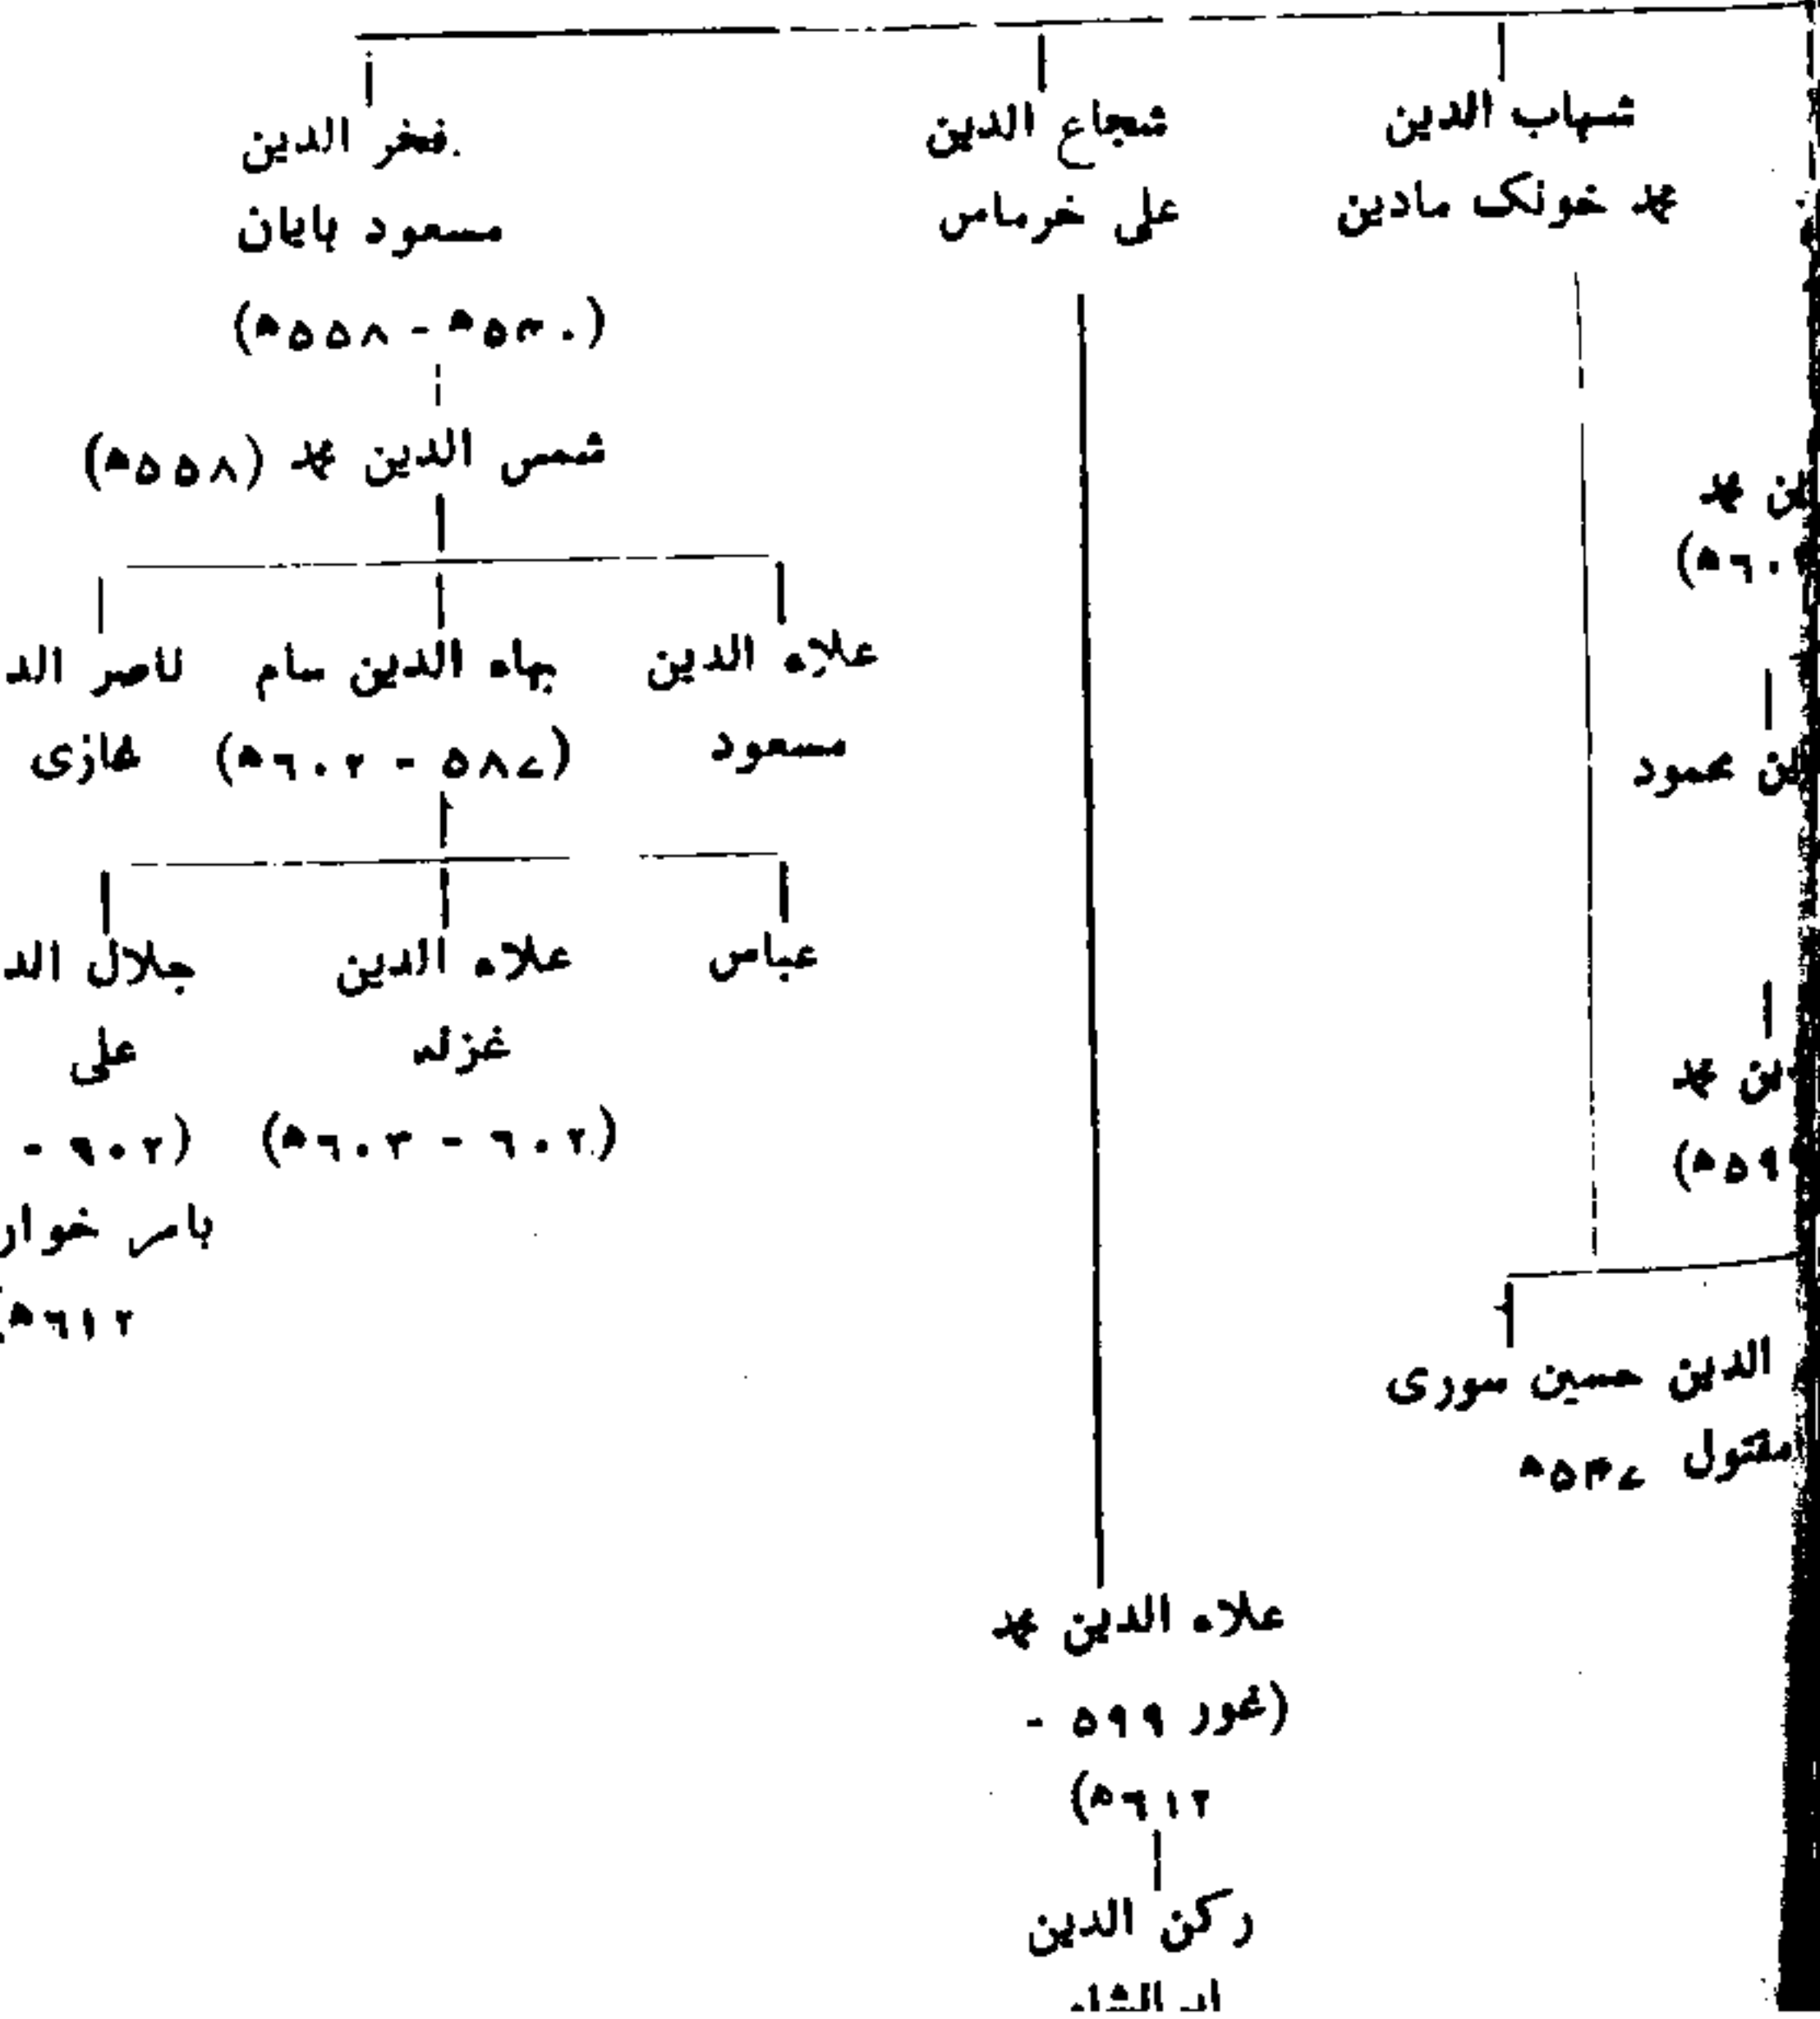 شہاب الدین
محمد خونک مادین
شجاع الدین
علی خرماس
فخر الدین
مسعود بامیان
(۵۳۰ھ - ۵۵۸ھ)
شمس الدین محمد (۵۵۸ھ)
ین محمد
علاء الدین
مسعود
بہاء الدین سام
(۵۸۷ - ۶۰۲ھ)
ناصر الد
غازی
ین محمود
عباس
علاء الدین
غزنہ
(۶۰۲ - ۶۰۳ھ)
جلال الد
علی
(۶۰۲ -
۶۱۲ھ
ین محمد
الدین حسین سوری
مقتول ۵۴۷ھ
علاء الدین محمد
(غور ۵۹۹ -
۶۱۲ھ)
رکن الدین